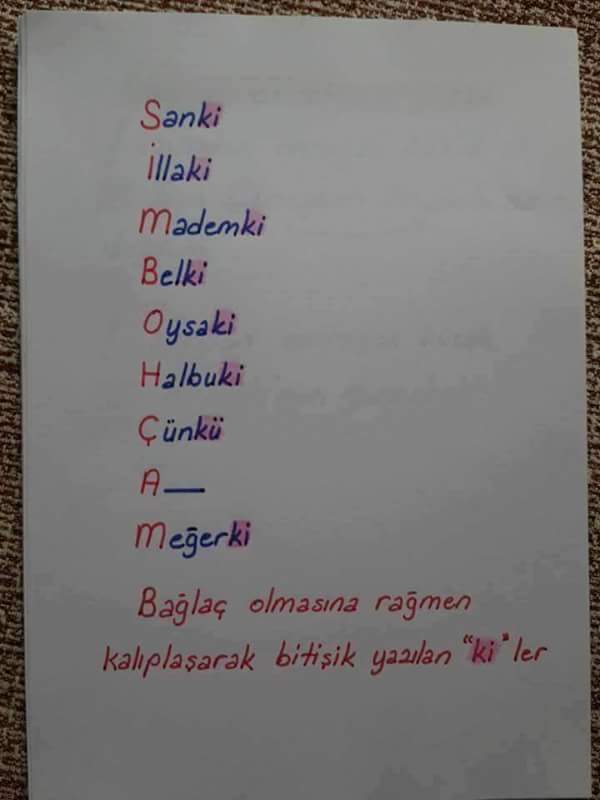 Sanki
İllaki
Mademki
Belki
Oysaki
Halbuki
Çünkü
A—
Meğerki
Bağlaç olmasına rağmen
kalıplaşarak bitişik yazılan "ki" ler